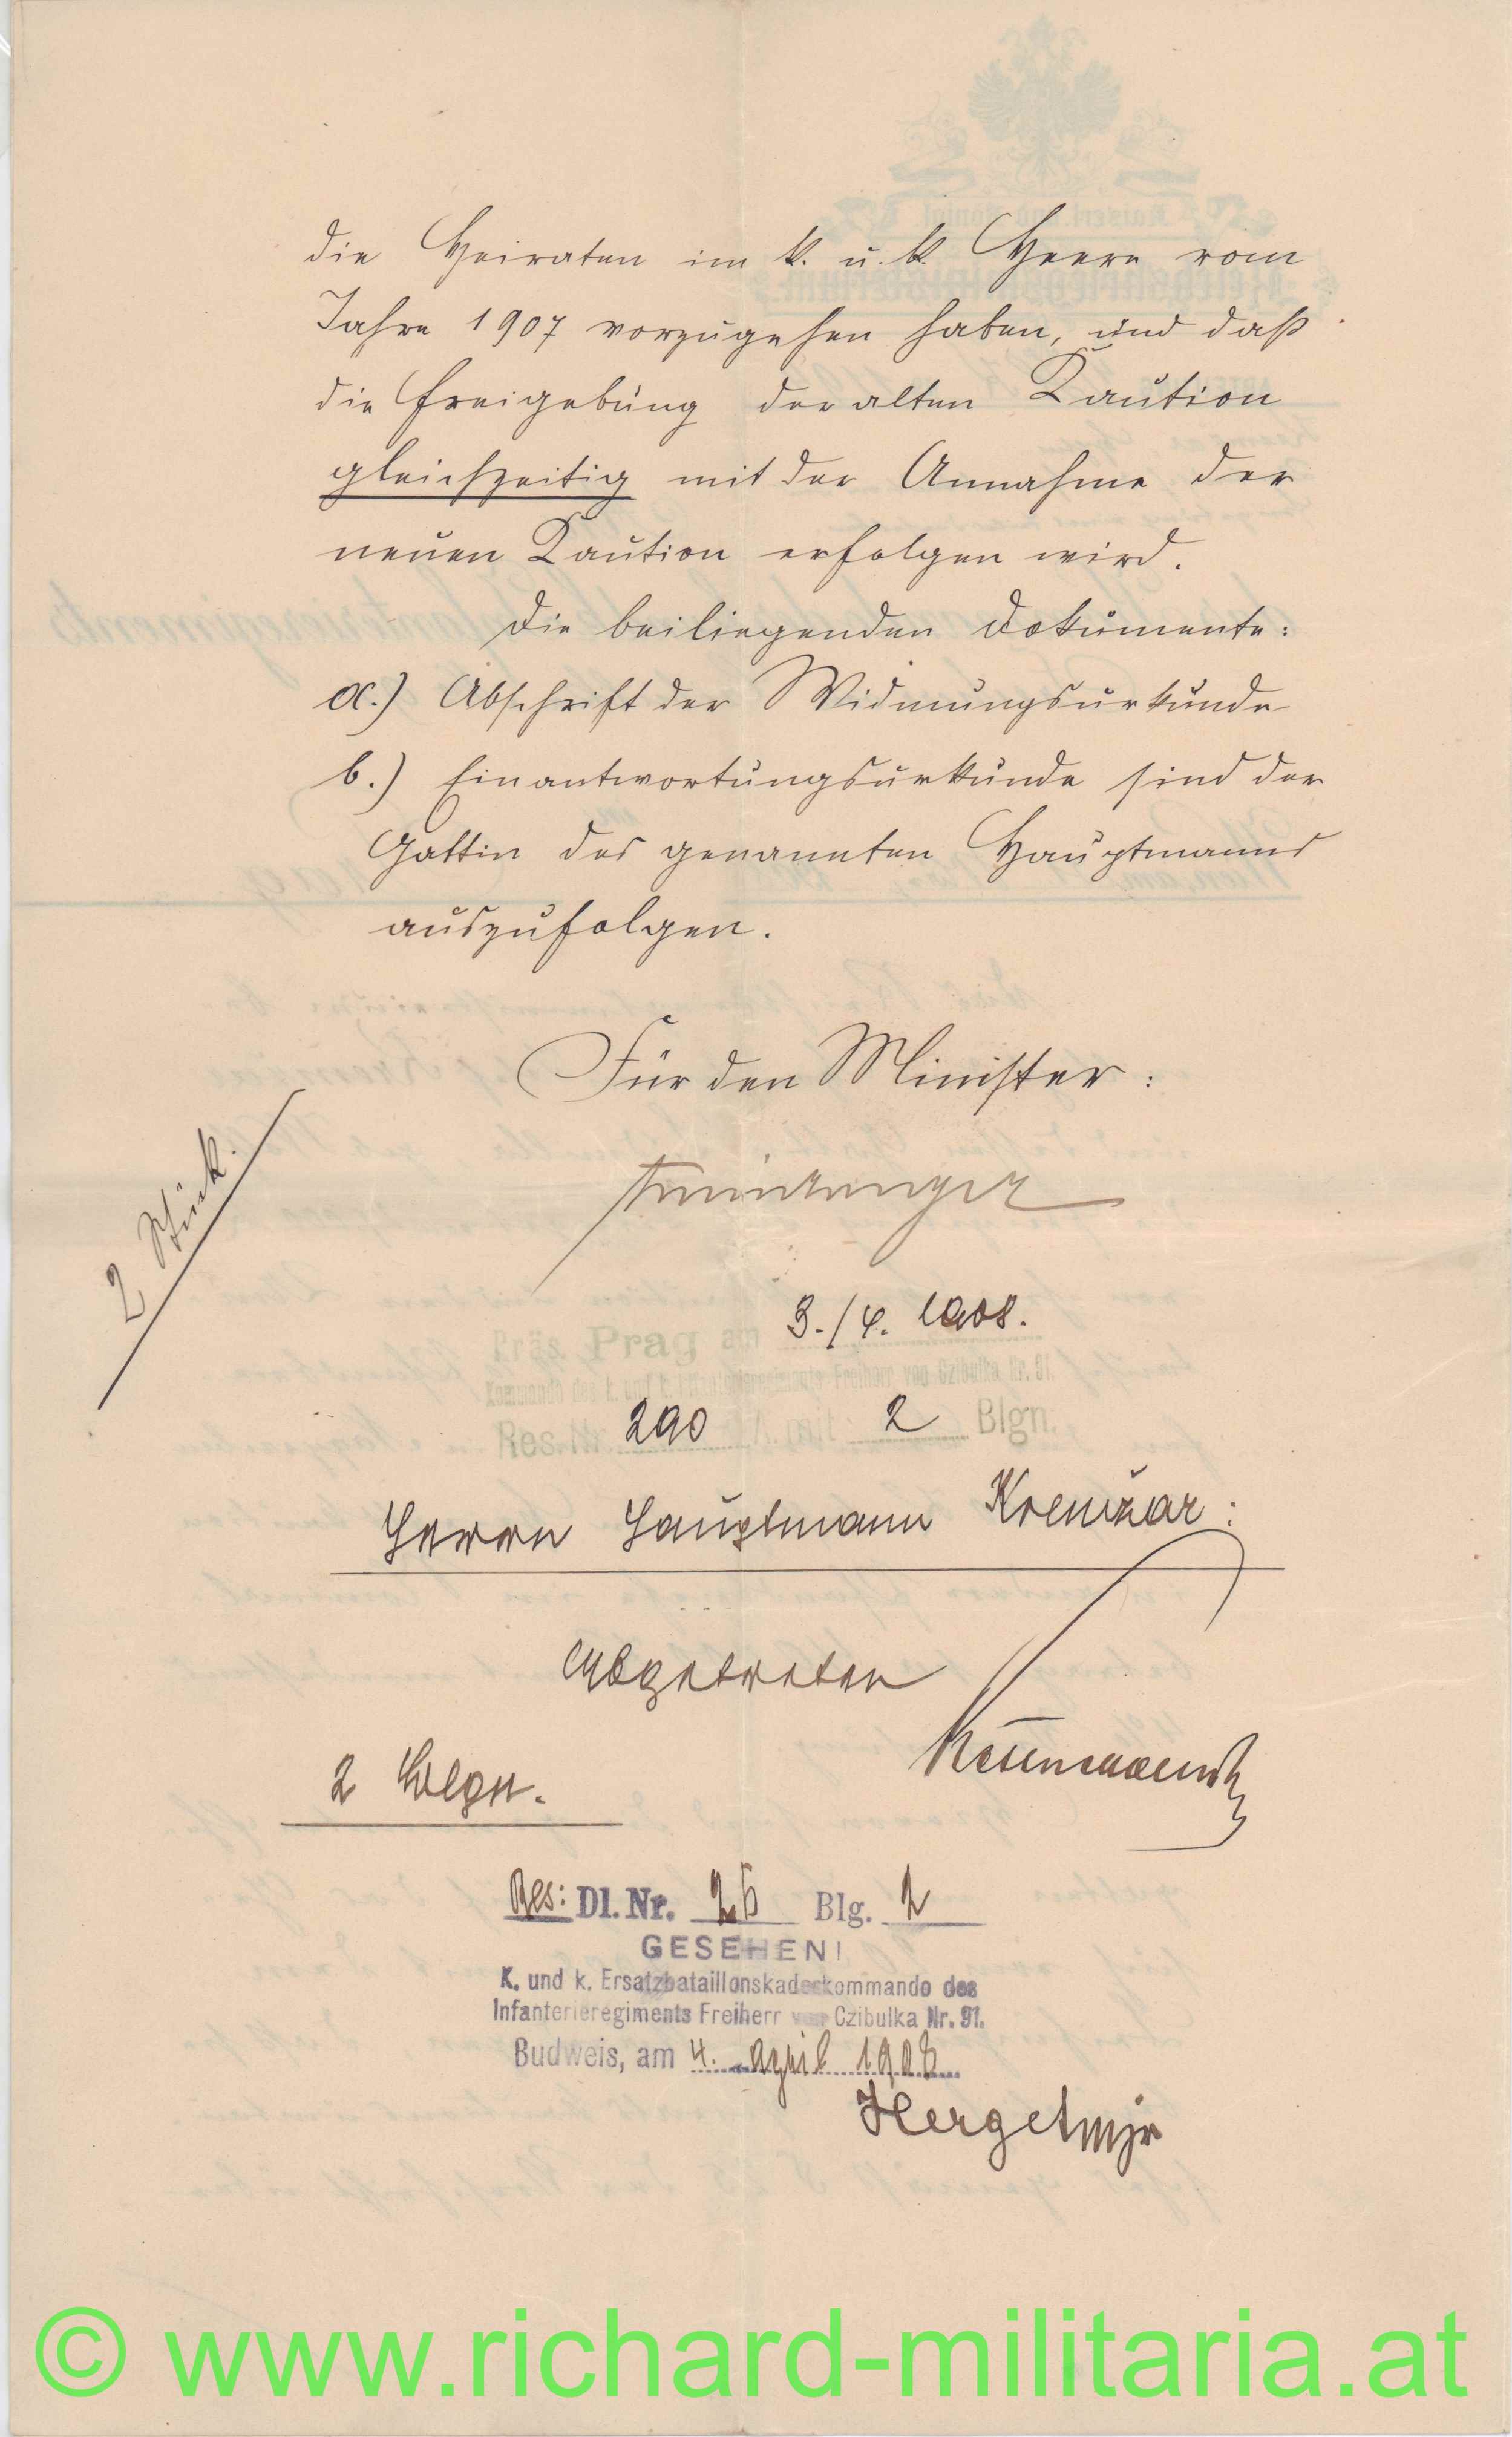 die Heiraten im k. u. k. Heere vom
Jahre 1907 vorzugehen haben, und daß
die Freigebung der alten Kaution
gleichzeitig mit der Annahme der
neuen Kaution erfolgen wird.
Die beiliegenden Dokumente:
a.) Abschrift der Widmungsurkunde
b.) Einantwortungsurkunde sind der
Gattin des genannten Hauptmanns
auszufolgen.
Für den Minister:
2 Stück.
Präs. Prag am 3./4. 1908.
Kommando des k. und k. Infanterieregiments Freiherr von Czibulka Nr. 91.
Res. Nr. 290 mit 2 Blgn.
Herrn Hauptmann Kremžar:
Abgetreten
2 Blgn.
Res: Dl. Nr. 26 Blg. 2
GESEHEN!
K. und k. Ersatzbataillonskaderkommando des
Infanterieregiments Freiherr von Czibulka Nr. 91.
Budweis, am 4. April 1908
Herget Mjr
© www.richard-militaria.at